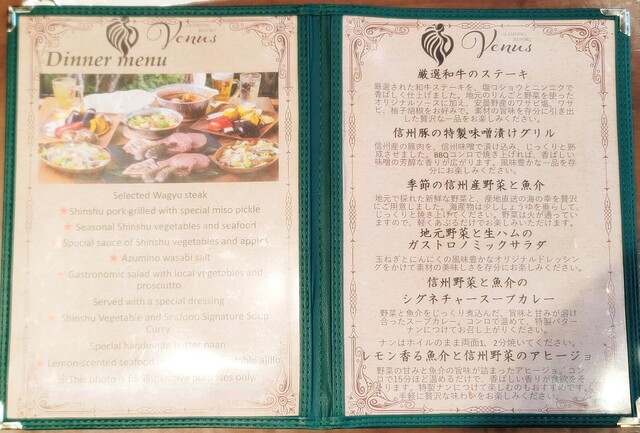 Venus
Dinner menu
Selected Wagyu steak
Shinshu pork grilled with special miso pickle
Seasonal Shinshu vegetables and seafood
Special sauce of Shinshu vegetables and apples
Azumino wasabi salt
Gastronomic salad with local vegetables and
prosciutto
Served with a special dressing
Shinshu Vegetable and Seafood Signature Soup
Curry
Special handmade butter naan
Lemon-scented seafood ajillo
※This photo is for purposes only.
GLAMPING
RESORT
Venus
厳選和牛のステーキ
厳選された和牛ステーキを、塩コショウとニンニクで
香ばしく仕上げました。地元のりんごと野菜を使った
オリジナルソースに加え、安曇野産のワサビ塩、ワサ
ビ、柚子胡椒をお好みで。素材の旨味を存分に引き出
した贅沢な一品をお楽しみください。
信州豚の特製味噌漬けグリル
信州産の豚肉を、信州味噌で漬け込み、じっくりと熟
成させました。BBQコンロで焼き上げれば、香ばしい
味噌の芳醇な香りが広がります。風味豊かな一品を存
分にお楽しみください。
季節の信州産野菜と魚介
地元で採れた新鮮な野菜と、産地直送の海の幸を贅沢
にご用意しました。海産物は少ししょうゆを垂らして、
じっくりと焼き上げてください。野菜は火が通ってい
ますので、軽くあぶるだけでお楽しみいただけます。
地元野菜と生ハムの
ガストロノミックサラダ
玉ねぎとにんにくの風味豊かなオリジナルドレッシン
グをかけて素材の美味しさを存分にお楽しみください。
信州野菜と魚介の
シグネチャースープカレー
野菜と魚介をじっくり煮込んだ、旨味と甘みが溶け
合ったスープカレー。コンロで温めて、特製バター
ナンにつけてお召し上がりください。
ナンはホイルのまま両面1、2分焼いてください。
レモン香る魚介と信州野菜のアヒージョ
野菜の甘みと魚介の旨味が詰まったアヒージョ。コン
ロで15分ほど温めるだけで、香ばしい香りが食欲をそ
そります。特製ナンにつけて楽しむのもおすすめです。
手軽に贅沢な味わいをお楽しみください。